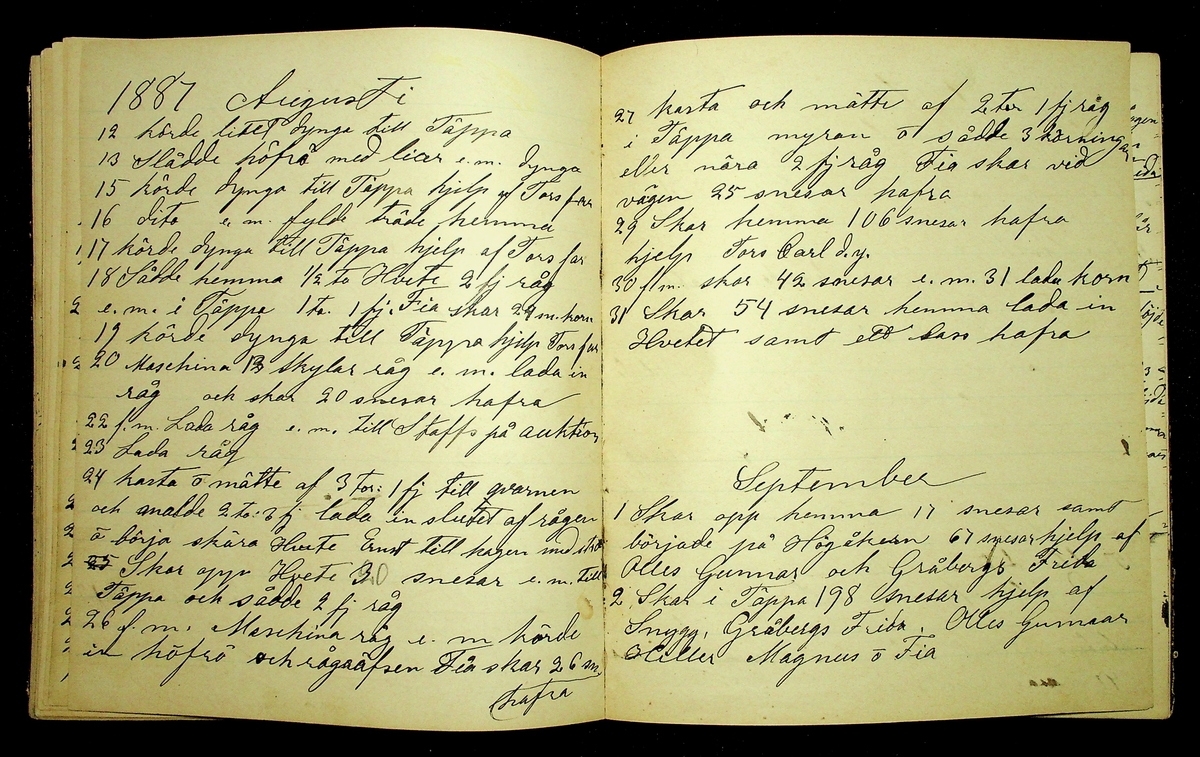 1887 Augusti
12 körde litet dynga till Täppa
13 Slådde höfrö med licer e.m. dynga
15 körde dynga till Täppa hjelp af Torsfar
16 dito e.m. fylde träde hemma
17 körde dynga till Täppa hjelp af Torsfar
18 Sådde hemma 1/2 to Hvete 2 fj råg
e.m. i Täppa 1 to. 1 fj. Fia skar 24 m. korn
19 körde dynga till Täppa hjelp Torsfar
20 Maschina 13 Skylar råg e.m. lada in
råg och skar 20 snesar hafra
22 f.m. Lada råg e.m. till Staffs på auktion
23 Lada råg
24 kasta o mätte af 3 to: 1 fj till qvarnen
och malde 2 to: 3 fj lada in slutet af rågen
o börja skära Hvete Ernst till hagen med
25 Skar opp Hvete 30 snesar e.m. till
Täppa och sådde 2 fj råg
26 f.m. Maschina råg e.m körde
in höfrö och rågaafsen Fia skar 26 m
hafra
27 kasta och mätte af 2 to 1 fj råg
i Täppa myran o sådde 3 körningar
eller nära 2 fj råg Fia skar ved
vägen 25 snesar hafra
29 Skar hemma 106 snesar hafra
hjelp Tors Carl d.y.
30 f.m. skar 42 snesar e.m. 31 lada korn
31 Skar 54 snesar hemma lada in
Hvetet samt ett lass hafra
September
1 Skar opp hemma 17 snesar samt
började på Högåkern 67 snesar hjelp af
Olles Gunnar och Gråbergs Frida
2 Skar i Täppa 198 snesar hjelp af
Snygg, Gråbergs Frida, Olles Gunnar
Hiller Magnus o Fia